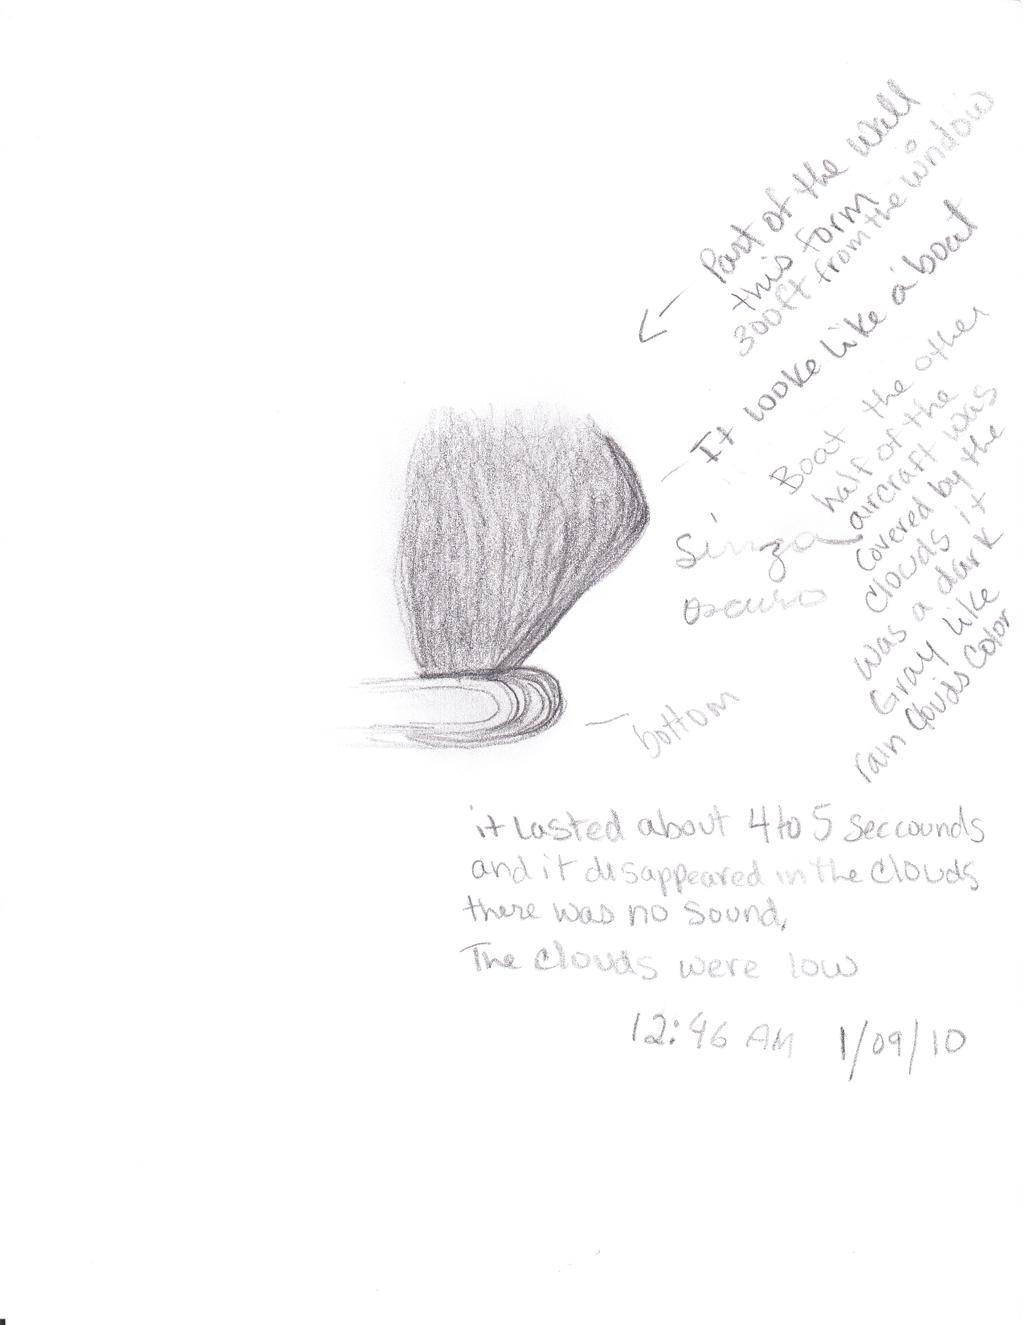 Part of the wall
this form
300ft from the window
It looke like a boat
Boat the other
half of the
aircraft was
covered by the
clouds it
was a dark
Gray like
rain clouds color
Sinza
oscuro
bottom
it Lasted about 4 to 5 seccounds
and it disappeared in the clouds
there was no sound,
The clouds were low
12:46 AM 1/09/10